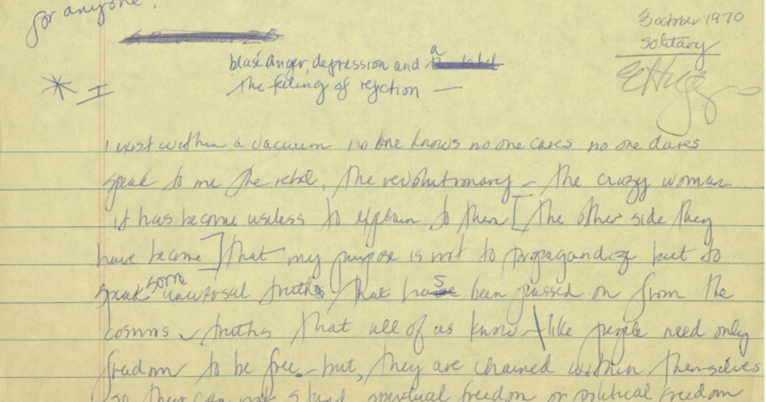 for anyone.
3 october 1970
solitary
blasé anger, depression and a
the feeling of rejection —
* I
i exist within a vacuum no one knows no one cares no one dares
speak to me the rebel, the revolutionary – the crazy woman
it has become useless to explain to them [the other side they
have become] that my purpose is not to propagandize but to
speak some universal truths that has been passed on from the
cosmos – truths that all of us know – like people need only
freedom to be free – but, they are chained within themselves
so they can not spiritual freedom or political freedom